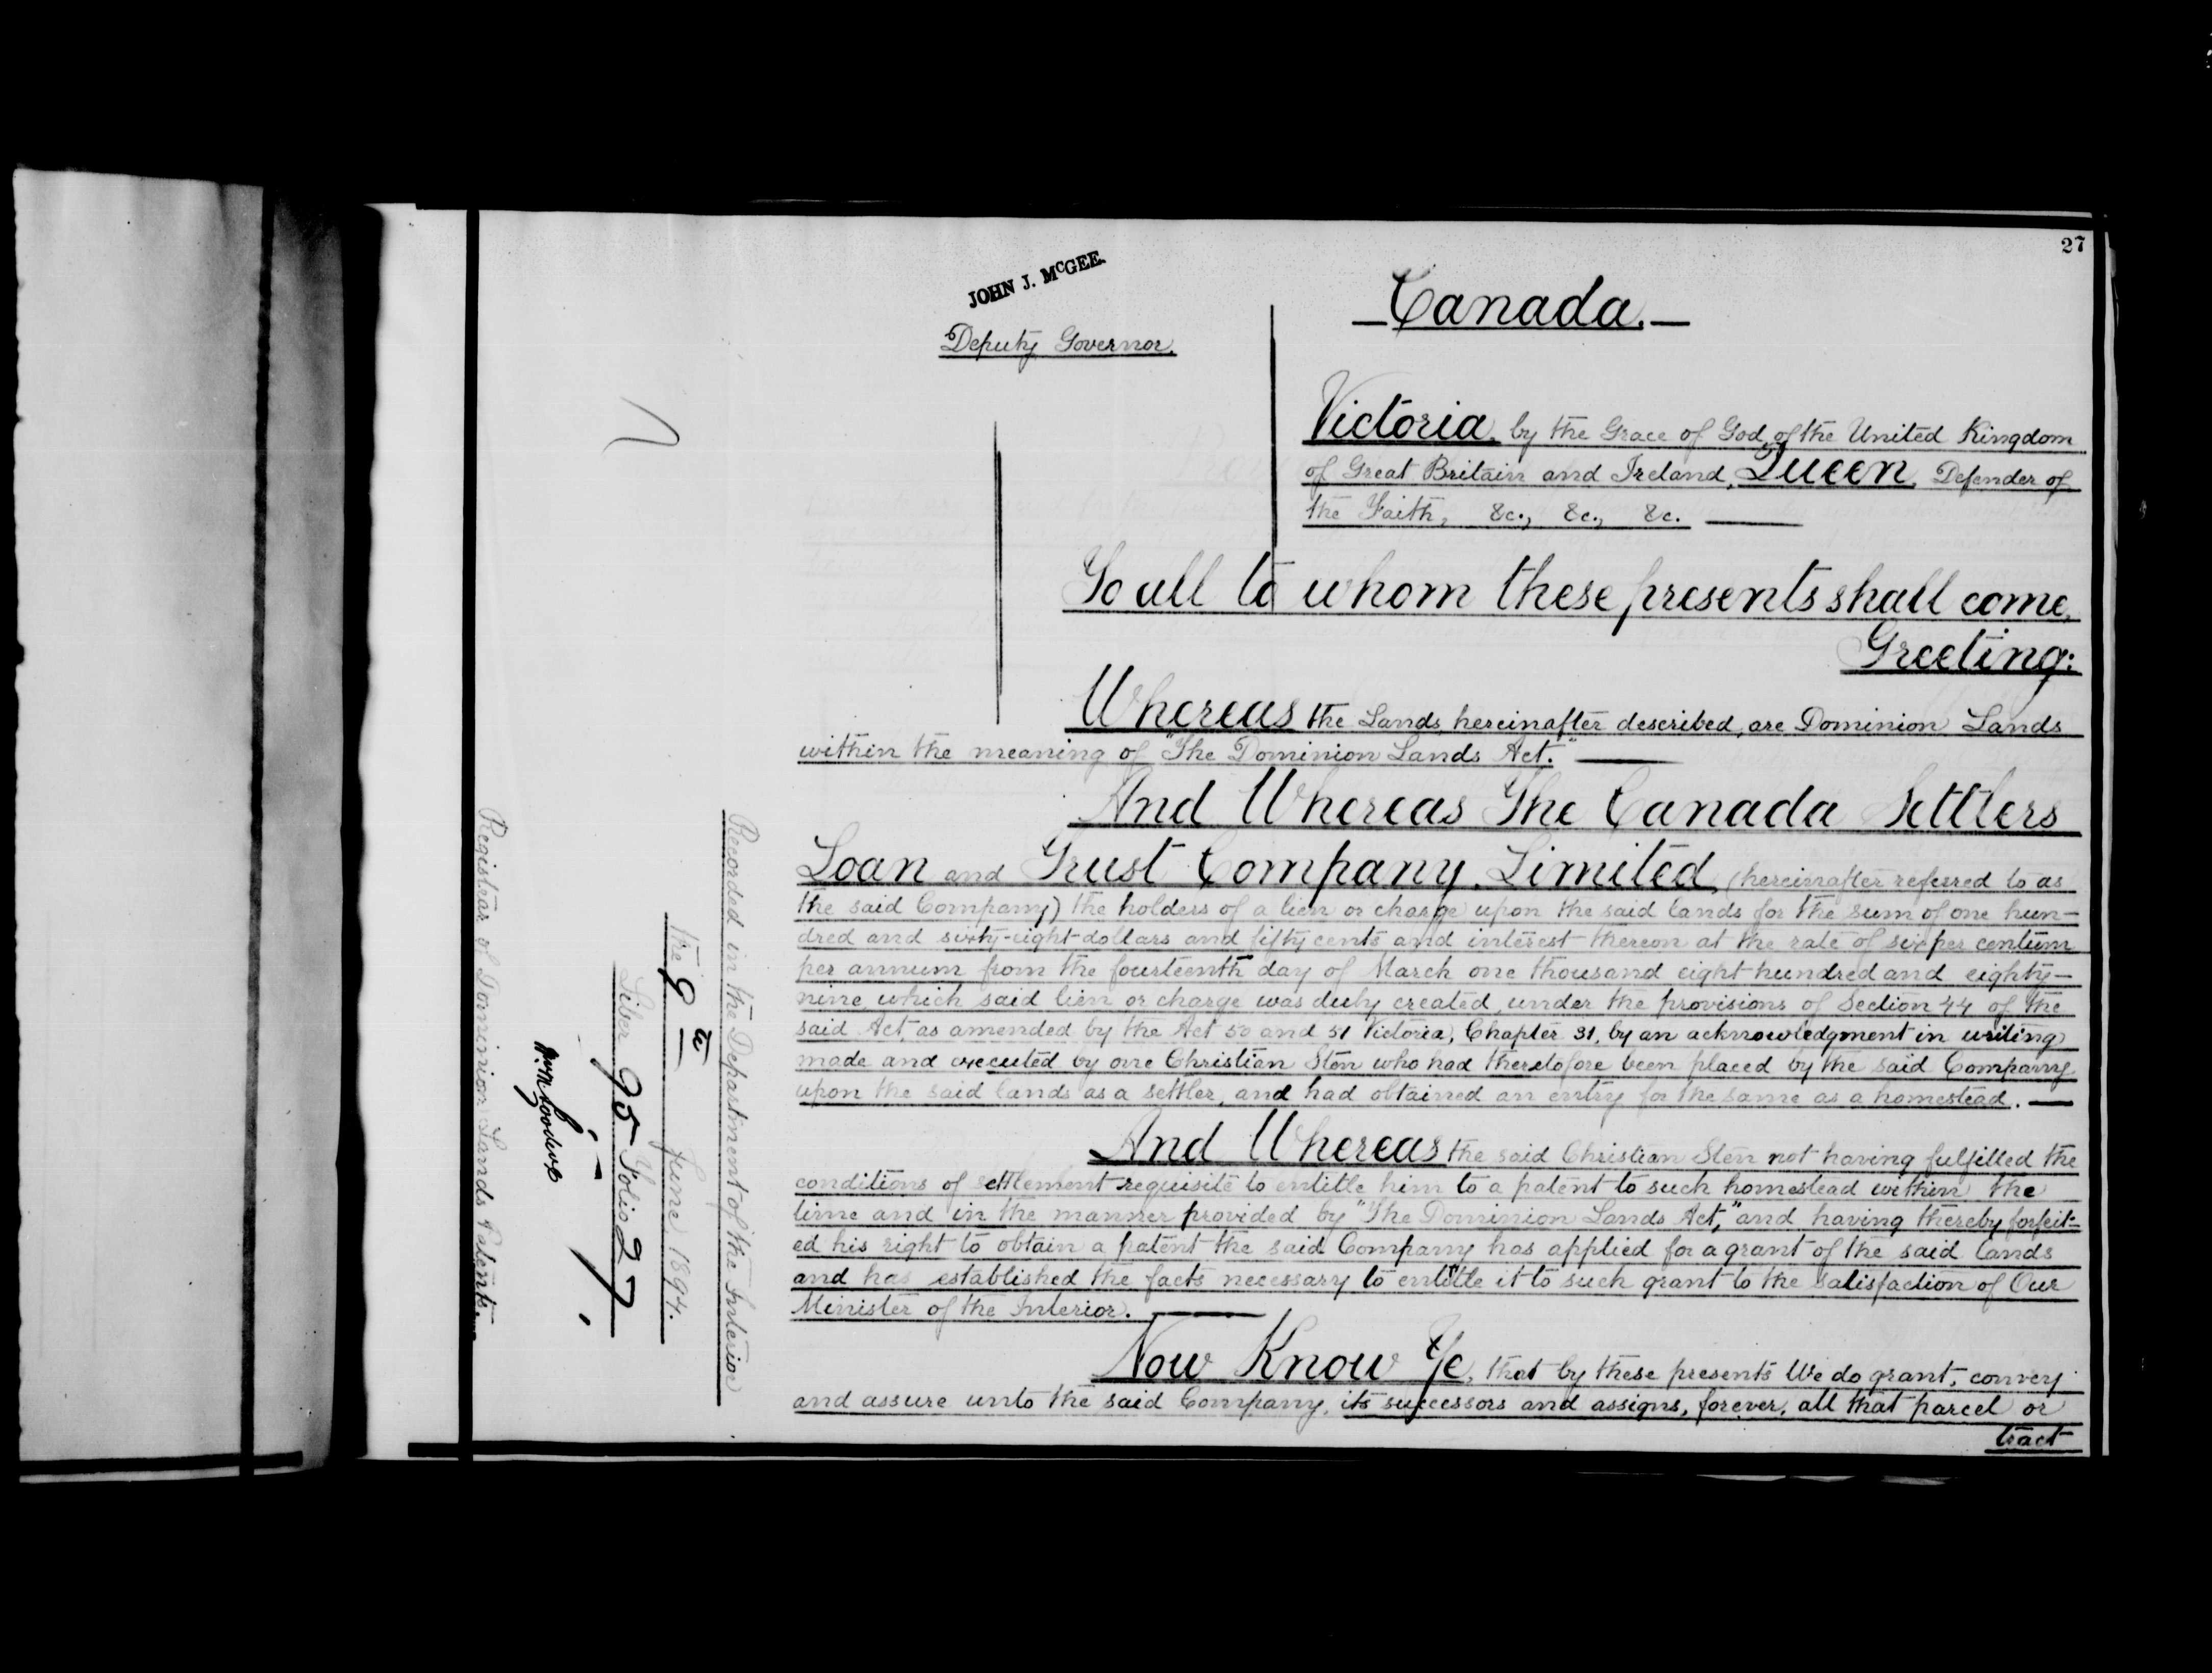 27
JOHN J. McGEE.
Deputy Governor.
Canada.
Victoria, by the Grace of God, of the United Kingdom
of Great Britain and Ireland, Queen, Defender of
the Faith, &c., &c., &c.
To all to whom these presents shall come,
Greeting:
Whereas the Lands hereinafter described, are Dominion Lands
within the meaning of "The Dominion Lands Act."
And Whereas The Canada Settlers
Loan and Trust Company, Limited, (hereinafter referred to as
the said Company) the holders of a lien or charge upon the said lands for the sum of one hun-
dred and sixty-eight dollars and fifty cents and interest thereon at the rate of six per centum
per annum from the fourteenth day of March one thousand eight hundred and eighty-
nine, which said lien or charge was duly created, under the provisions of Section 44 of the
said Act, as amended by the Act 50 and 51 Victoria, Chapter 31, by an acknowledgment in writing
made and executed by one Christian Sten who had theretofore been placed by the said Company
upon the said lands as a settler, and had obtained an entry for the same as a homestead.
And Whereas the said Christian Sten not having fulfilled the
conditions of settlement requisite to entitle him to a patent to such homestead within the
time and in the manner provided by "The Dominion Lands Act," and having thereby forfeit-
ed his right to obtain a patent the said Company has applied for a grant of the said lands
and has established the facts necessary to entitle it to such grant to the satisfaction of Our
Minister of the Interior.
Now Know Ye, that by these presents We do grant, convey
and assure unto the said Company, its successors and assigns, forever, all that parcel or
tract
Recorded in the Department of the Interior
the 9th June 1894.
Liber 95 Folio 27
Registrar of Dominion Lands Patents.